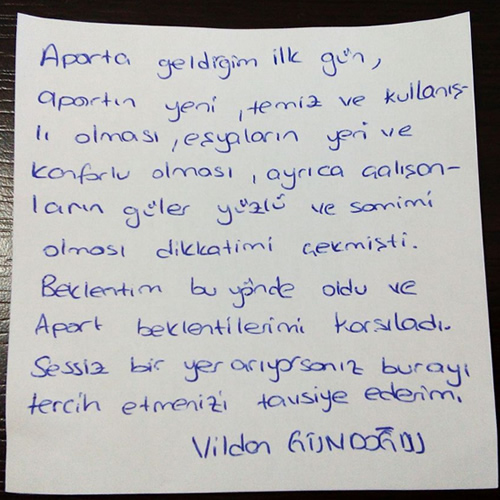 Aparta geldiğim ilk gün,
apartın yeni, temiz ve kullanış-
lı olması, eşyaların yeri ve
konforlu olması, ayrıca çalışan-
ların güler yüzlü ve samimi
olması dikkatimi çekmişti.
Beklentim bu yönde oldu ve
Apart beklentilerimi karşıladı.
Sessiz bir yer arıyorsanız burayı
tercih etmenizi tavsiye ederim.
Vildan GÜNDOĞDU